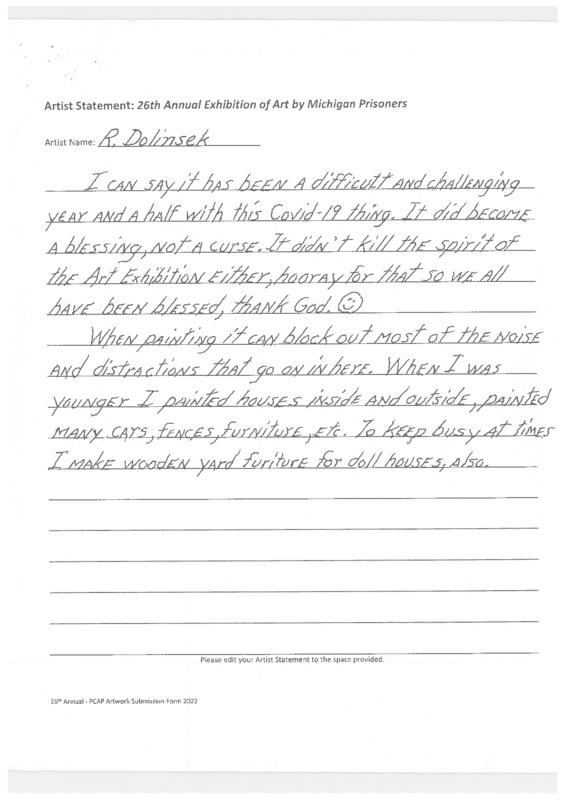 Artist Statement: 26th Annual Exhibition of Art by Michigan Prisoners
Artist Name: R. Dolinsek
I can say it has been a difficult and challenging
year and a half with this Covid-19 thing. It did become
a blessing, not a curse. It didn't kill the spirit of
the Art Exhibition either, hooray for that so we all
have been blessed, thank God. ☺
When painting it can block out most of the noise
and distractions that go on in here. When I was
younger I painted houses inside and outside, painted
many cars, fences, furniture, etc. To keep busy at times
I make wooden yard furiture for doll houses, also.
Please edit your Artist Statement to the space provided.
26th Annual - PCAP Artwork Submission Form 2022